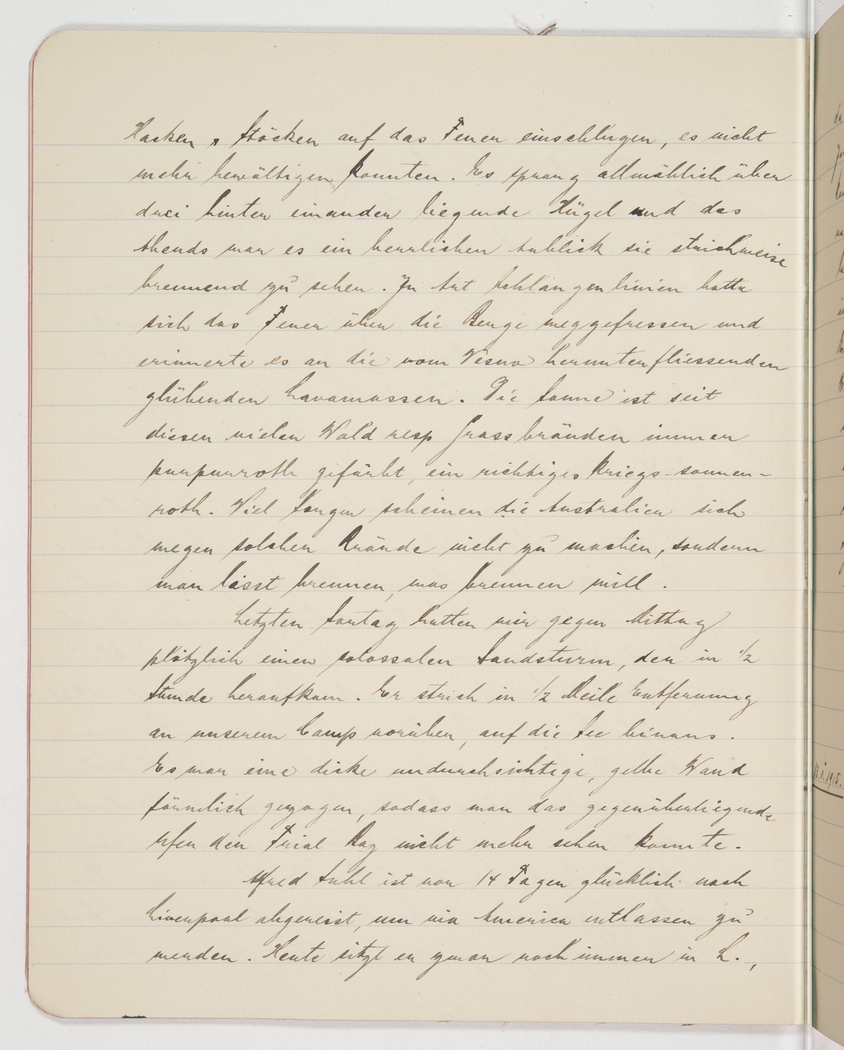 Hacken & Stöcken auf das Feuer einschlugen, es nicht
mehr bewältigen konnten. Es sprang allmählich über
drei hinter einander liegende Hügel und des
Abends war es ein herrlicher Anblick sie strichweise
brennend zu sehen. In Art Schlangenlinien hatte
sich das Feuer über die Berge weggefressen und
erinnerte es an die vom Vesuv herunterfliessenden
glühenden Lavamassen. Die Sonne ist seit
diesen vielen Wald resp Grassbränden immer
purpurroth gefärbt, ein richtiges Kriegs-sonnen-
roth. Viel Sorgen scheinen die Australier sich
wegen solcher Brände nicht zu machen, sondern
man lässt brennen, was brennen will.
Letzten Sontag hatten wir gegen Mittag
plötzlich einen colossalen Sandsturm, der in 1/2
Stunde heraufkam. Er strich in 1/2 Meile Entfernung
an unserem Camp vorüber, auf die See hinaus.
Es war eine dicke undurchsichtige, gelbe Wand
förmlich gezogen, sodass man das gegenüberliegende
Ufer der Trial Bay nicht mehr sehen konnte.
Alfred Suhl ist vor 14 Tagen glücklich nach
Liverpool abgereist, um via America entlassen zu
werden. Heute sitzt er zwar noch immer in L.,